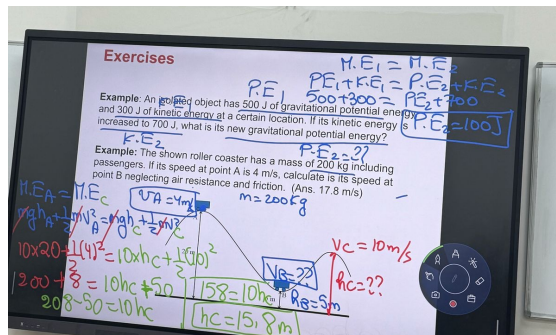 Exercises
M.E1 = M.E2
P.E1
PE1+K.E1 = P.E2+K.E2
K.E1
500+300 = PE2+700
Example: An isolated object has 500 J of gravitational potential energy
and 300 J of kinetic energy at a certain location. If its kinetic energy is
P.E2=100J
increased to 700 J, what is its new gravitational potential energy?
K.E2
P.E2=??
Example: The shown roller coaster has a mass of 200 kg including
passengers. If its speed at point A is 4 m/s, calculate is its speed at
point B neglecting air resistance and friction. (Ans. 17.8 m/s)
M.EA = M.EC
VA=4m/s
m=200kg
mghA+1/2mvA²=mghC+1/2mvC²
VC = 10m/s
10x20+1/2(4)²=10xhc+1/2(10)²
VB=??
hC=??
200+8=10hc+50
158=10hc
hB=5m
208-50=10hc
hc=15,8m